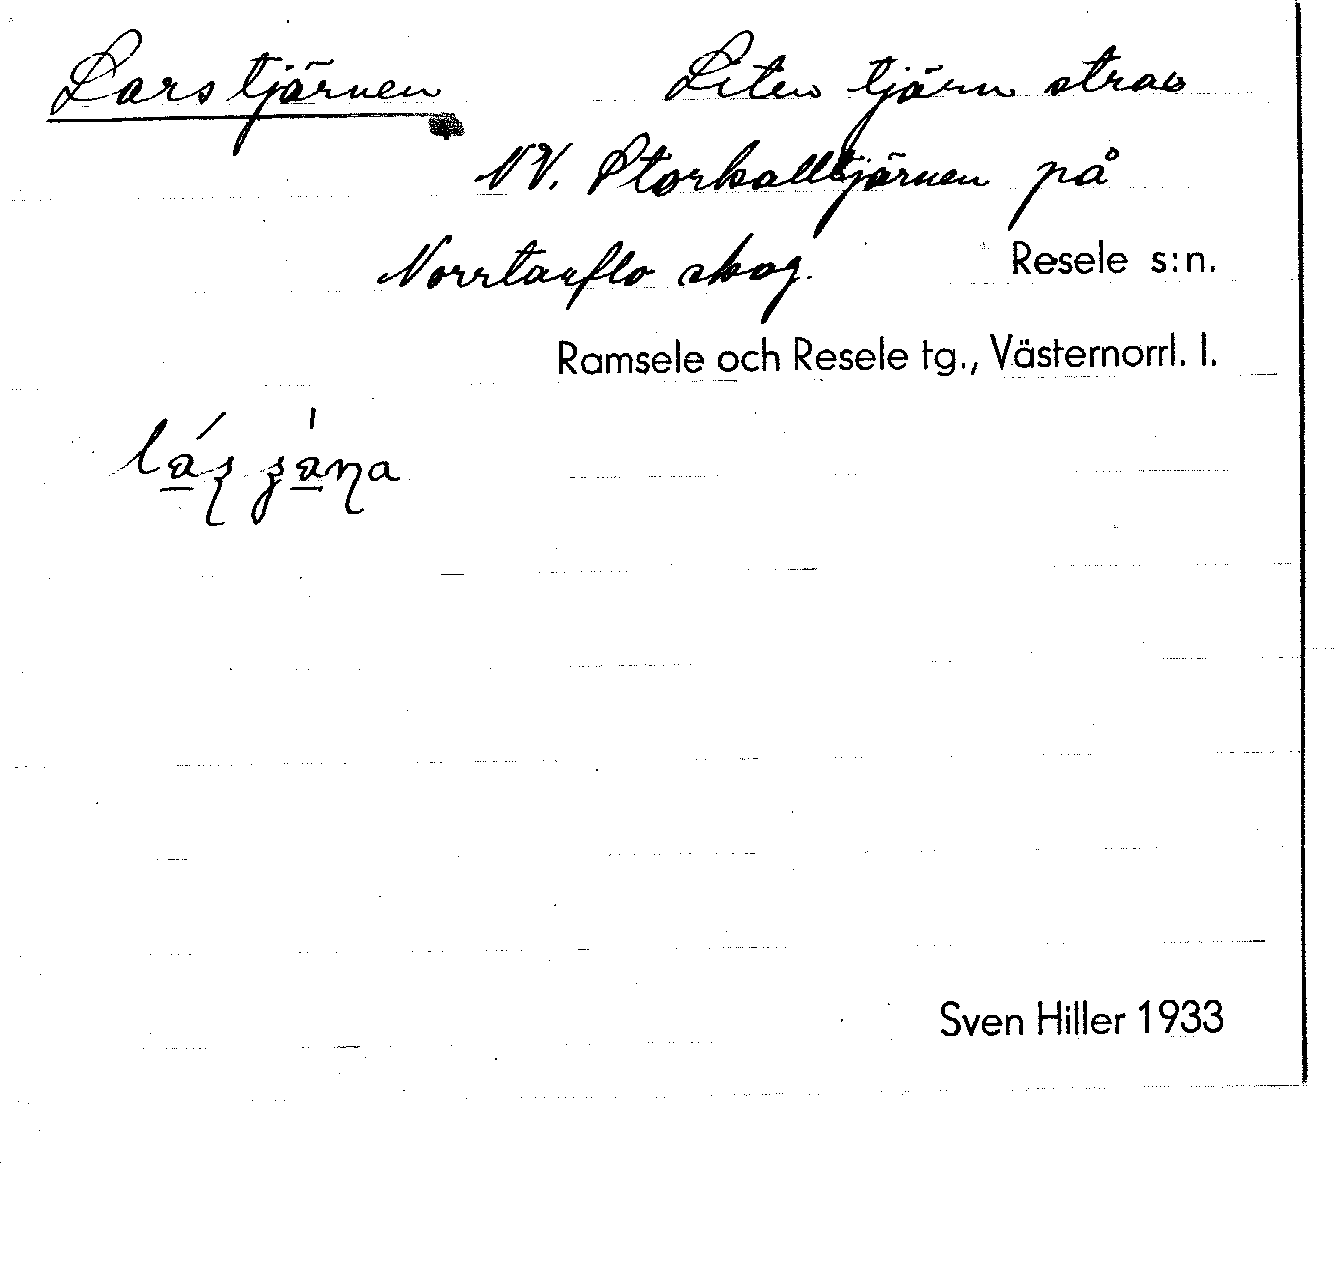 Larstjärnen Liten tjärn strax
NV. Storkalltjärnen på
Norrtanflo skog. Resele s:n.
Ramsele och Resele tg., Västernorrl. l.
Sven Hiller 1933